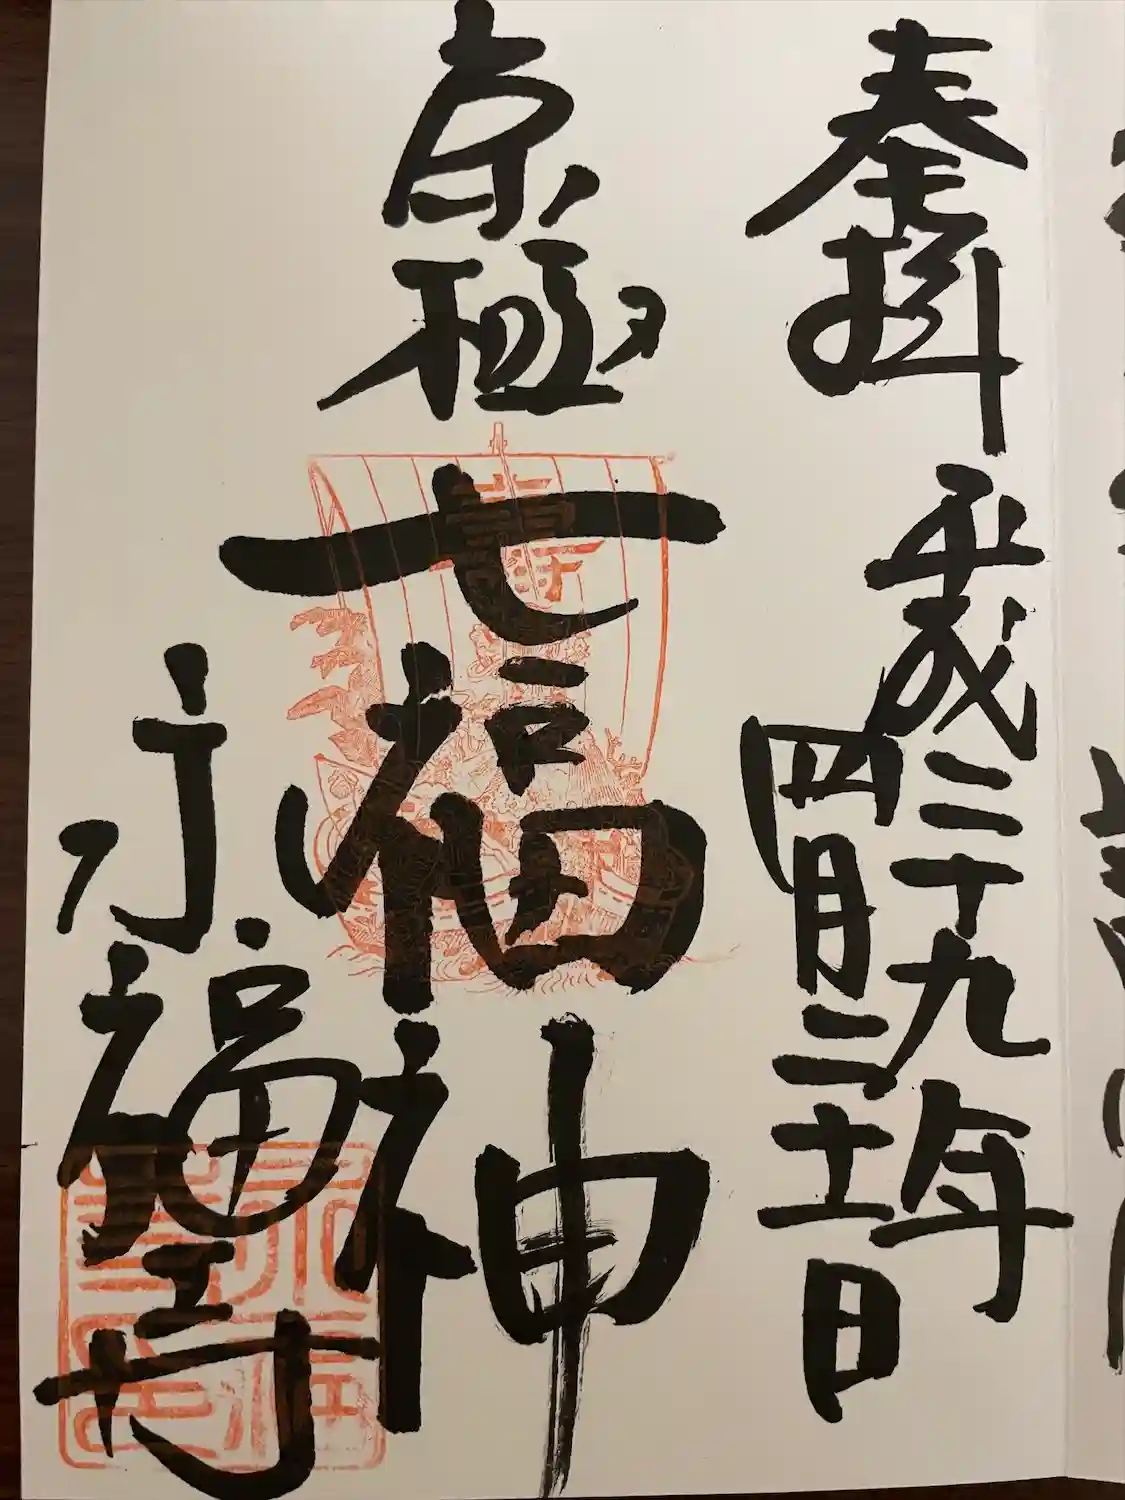 奉拝
平成二十九年
四月二十一日
京極
七福神
永福寺